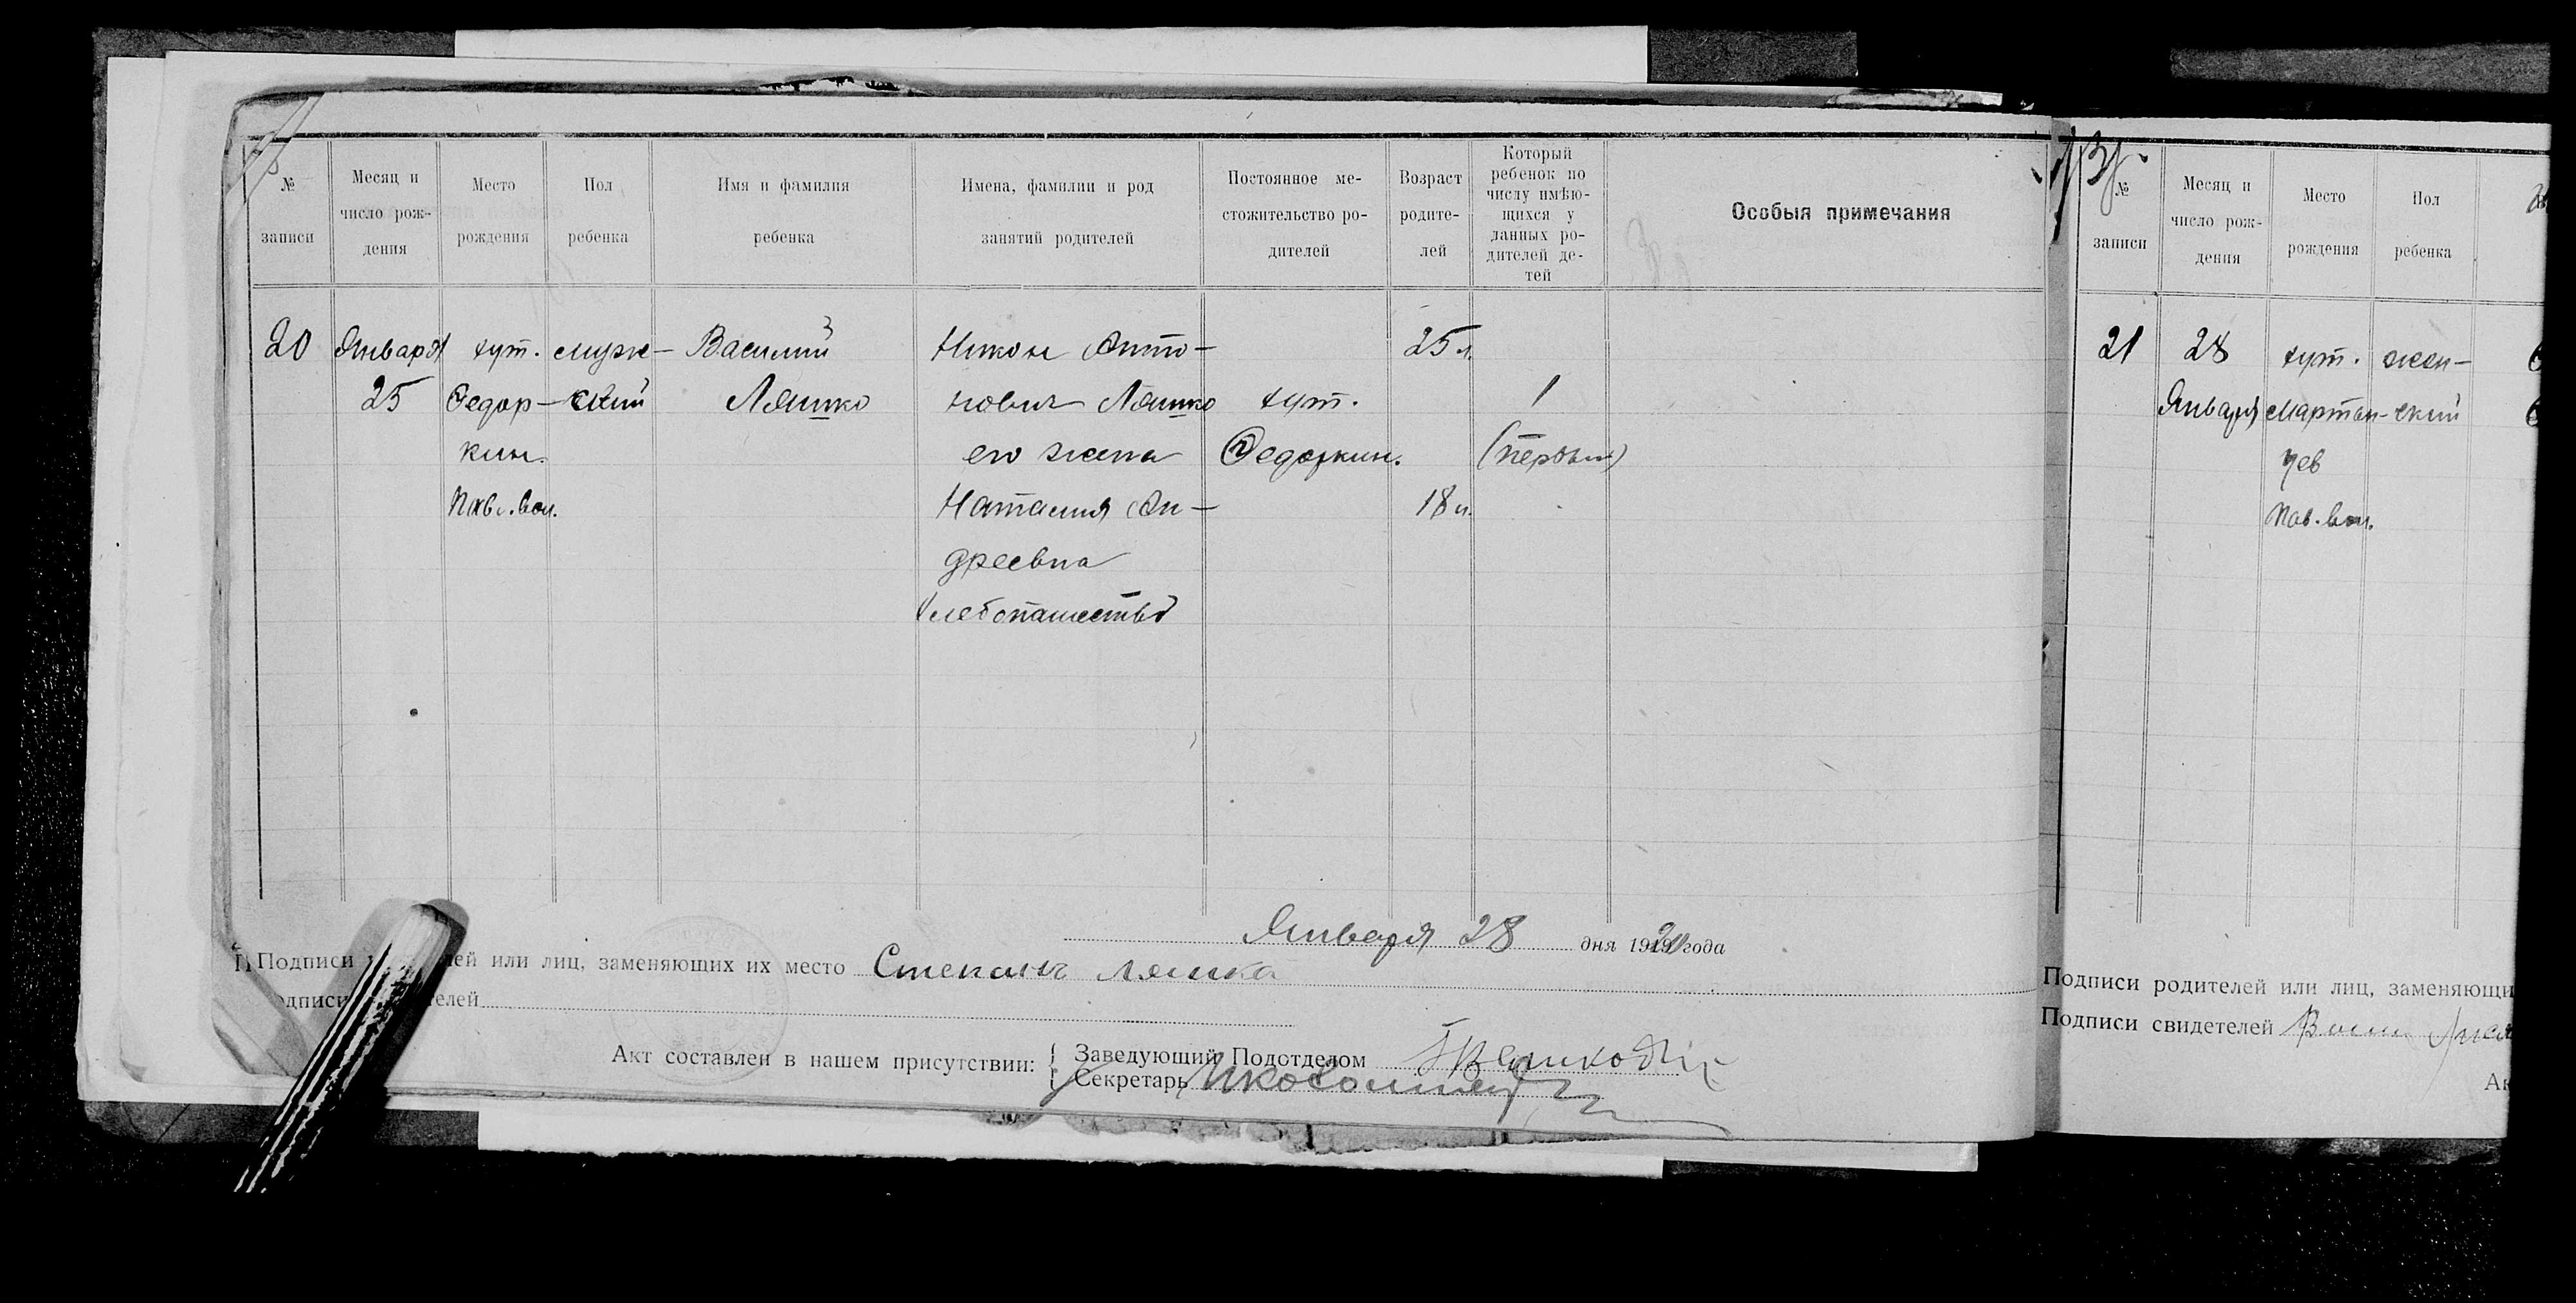 № записи
Месяц и число рож-дения
Место рождения
Пол ребенка
Имя и фамилия ребенка
Имена, фамилии и род занятий родителей
Постоянное ме-стожительство ро-дителей
Возраст родите-лей
Который ребенок по числу имѣю-щихся у данных ро-дителей де-тей
Особыя примечания
20 Января хут. муж- Василий Никон Анто- 25 л.
25 Федор- ский Ляшко нович Ляшко хут. 1
кин. его жена Федоркин. (первый)
Павл. вол. Наталия Ан- 18 л.
дреевна
Хлебопашество
Января 28 дня 1920 года
Подписи лей или лиц, заменяющих их место Степанъ Ляшка
одписи телей
Акт составлен в нашем присутствии: Заведующий Подотделом
Секретарь
№ записи
Месяц и число рож-дения
Место рождения
Пол ребенка
21 28 хут. жен-
Января Мартын- ский
цев
Пав. вол.
Подписи родителей или лиц, заменяющи
Подписи свидетелей
Ак